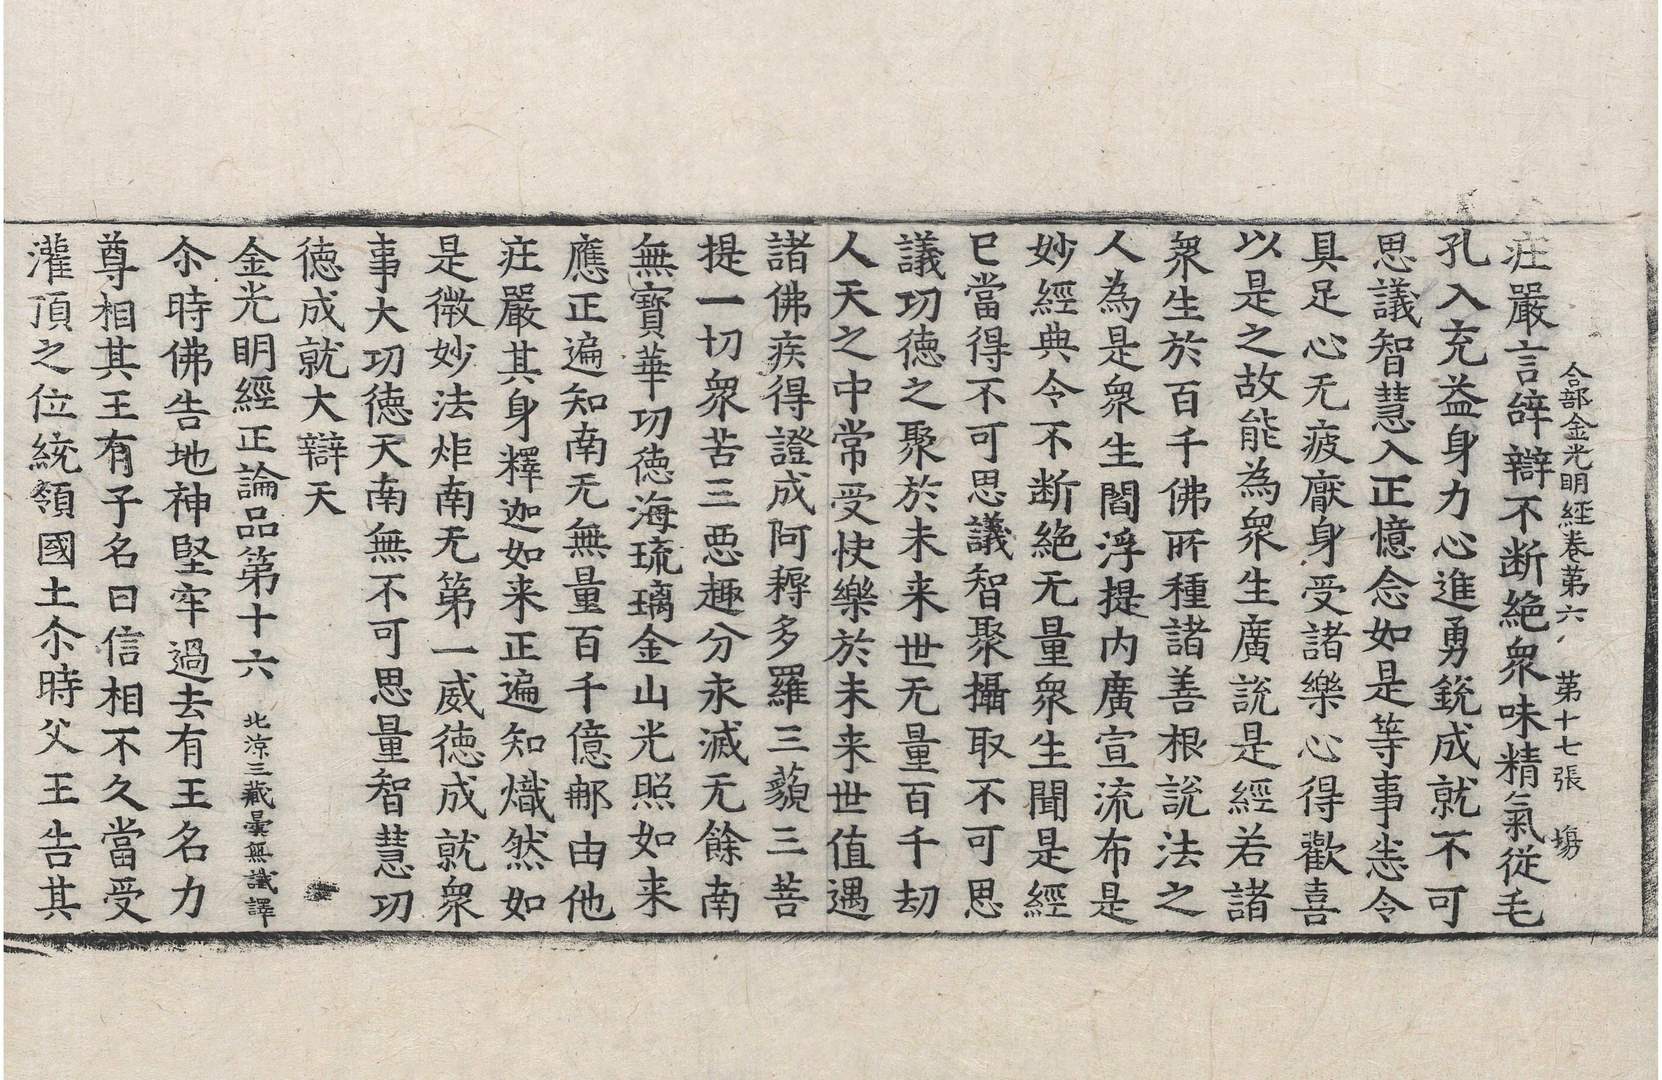 合部金光明経卷苐六 苐十七張 塲
疘嚴言辞辯不断絶衆味精氣從毛
孔入充益身力心進勇銳成就不可
思議智慧入正憶念如是等事悉令
具足心无疲猒身受諸樂心得歡喜
以是之故能為衆生廣說是經若諸
衆生於百千佛所種諸善根說法之
人為是衆生閻浮提内廣宣流布是
妙經典令不断絶无量衆生聞是經
已當得不可思議智聚攝取不可思
議功徳之聚於未来世无量百千劫
人天之中常受快樂於未来世值遇
諸佛疾得證成阿耨多羅三藐三菩
提一切衆苦三惡趣分永滅无餘南
無寶華功徳海琉璃金山光照如来
應正遍知南无無量百千億那由他
疘嚴其身釋迦如来正遍知熾然如
是微妙法炬南无第一威徳成就衆
事大功徳天南無不可思量智慧功
徳成就大辯天
金光明經正論品第十六 北涼三藏曇無讖譯
尒時佛告地神堅牢過去有王名力
尊相其王有子名曰信相不久當受
灌頂之位統領國土尒時父王告其